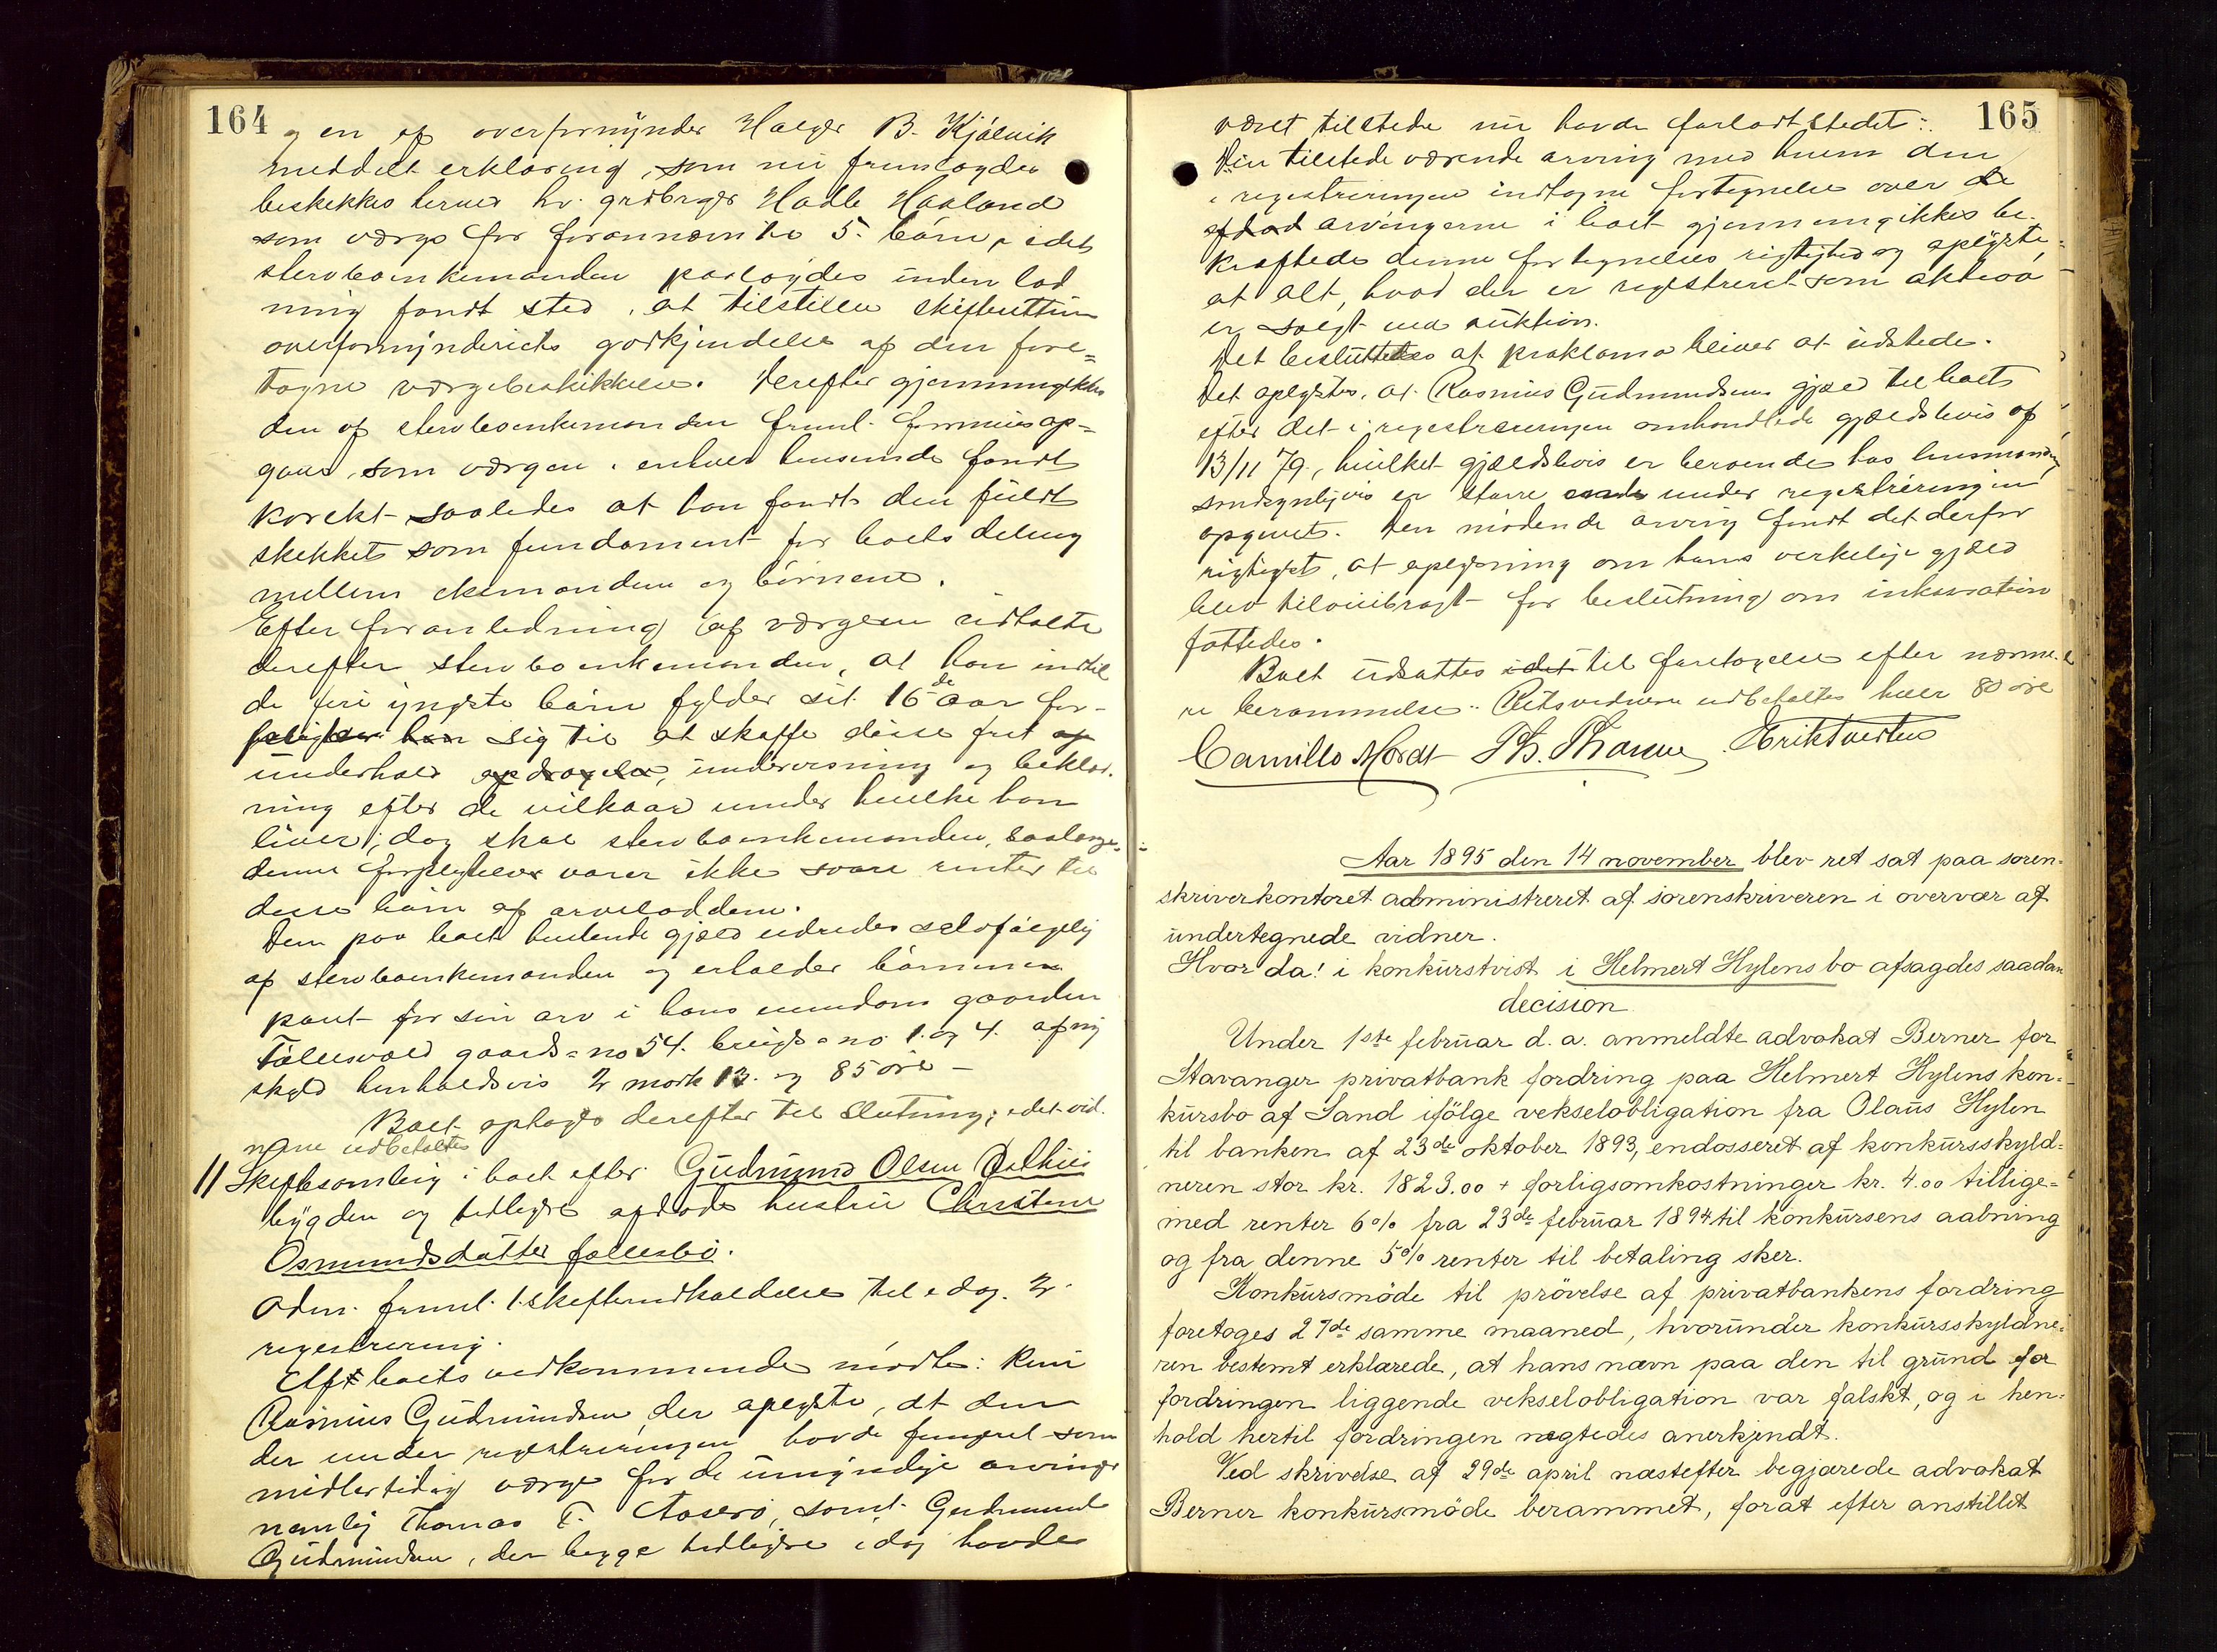 164
og en af overformynder Holger B. Kjølvik
meddelt erklæring, som nu fremlagdes
beskikkes herved hr. grdbrger Hadle Haaland
som værge for forannævnte 5. børn, idet
stervboenkemanden paalagdes inden lod
ning fandt sted, at tilstille skifteretten
overformynderiets godkjendelse af den fore=
tagne værgebeskikkelse. Derefter gjennemgikkes
den af stervboenkemanden freml. formuesop=
gave, som værgen i enhver henseende fandt
korekt saaledes at han fandt den fuldt
skikket som fundament for boets deling
mellem enkemanden og børnene.
Efter foranledning af værgen udtalte
derefter stervboenkemanden, at han indtil
de fire yngste børn fylder sit 16de aar for-
pligter han sig til at skaffe disse frit
underhold opdragelse, undervisning og beklæd-
ning efter de vilkaar under hvilke han
lever; dog skal stervboenkemanden, saalænge
denne forpligtelse varer ikke svare renter til
disse børn af arvelodden.
Den paa boet hvilende gjæld udredes selvfølgelig
af stervboenkemanden og erholder børnene
pant for sin arv i hans eiendom gaarden
gaards=no 54. brugs=no 1. og 4. af ny
skyld henholdsvis 2 mark 13. og 85 øre –
Boet optoges derefter til slutning; idet vid-
nerne udbetaltes
11 Skiftesamling i boet efter Gudmund Olsen
bygden og tidligere afdøde hustru Christine
Osmundsdatter
Adm. freml. 1. skifteindkaldelse til idag. 2.
registrering.
Af boets vedkommende mødte:
Rasmus Gudmundsen der oplyste, at den
der under registreringen havde fungeret som
midlertidig værge for de umyndige arvinger
nemlig Thomas T. Aaserø, samt Gudmund
Gudmundsen, der begge tidligere idag havde
165
været tilstede nu havde forladt stedet:
Den tilstedeværende arving med hvem den
i registreringen indtagne fortegnelse over de
afdød arvingerne i boet gjennemgikkes be-
kræftede denne fortegnelses rigtighed og oplyste,
at alt, hvad der er registreret som aktiva
er solgt ved auktion.
Det besluttedes at proklama bliver at udstede.
Det oplystes, at Rasmus Gudmundsens gjæld til boet
efter det i registreringen omhandlede gjældsbevis af
13/11 79, hvilket gjældsbevis er beroende hos lensmanden
sandsynligvis er større under registreringen
opgivet. Den mødende arving fandt det derfor
rigtigst, at oplysning om hans verkelige gjæld
blev tilveiebragt før beslutning om inkasation
fattedes.
Boet udsattes idet til foretagelse efter nærme-
re berammelse. Retsvidnerne udbetaltes hver 80 øre
Camillo Mordt Th. Thorsen Erik Tveiten
Aar 1895 den 14 november blev ret sat paa soren=
skriverkontoret administreret af sorenskriveren i overvær af
undertegnede vidner.
Hvor da! i konkurstvist i Helmert Hylens bo afsagdes saadan
decision
Under 1ste februar d. a. anmeldte advokat Berner for
Stavanger privatbank fordring paa Helmert Hylens kon=
kursbo af Sand ifölge vekselobligation fra Olaus Hylen
til banken af 23de oktober 1893, endosseret af konkursskyld=
neren stor kr. 1823.00 + forligsomkostninger kr. 4.00 tillige=
med renter 6% fra 23de februar 1894 til konkursens aabning
og fra denne 5% renter til betaling sker.
Konkursmöde til prövelse af privatbankens fordring
foretoges 27de samme maaned, hvorunder konkursskyldne=
ren bestemt erklærede, at hans navn paa den til grund for
fordringen liggende vekselobligation var falskt, og i hen=
hold hertil fordringen nægtedes anerkjendt.
Ved skrivelse af 29de april næstefter begjærede advokat
Berner konkursmöde berammet, forat efter anstillet